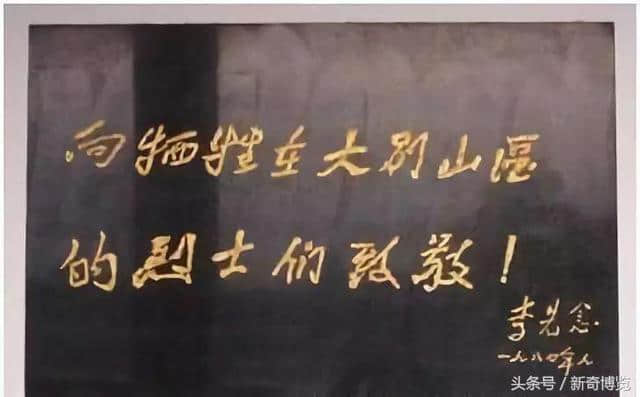 向牺牲在大别山区
的烈士们致敬！
李先念
一九八〇年九
头条号／新奇博览